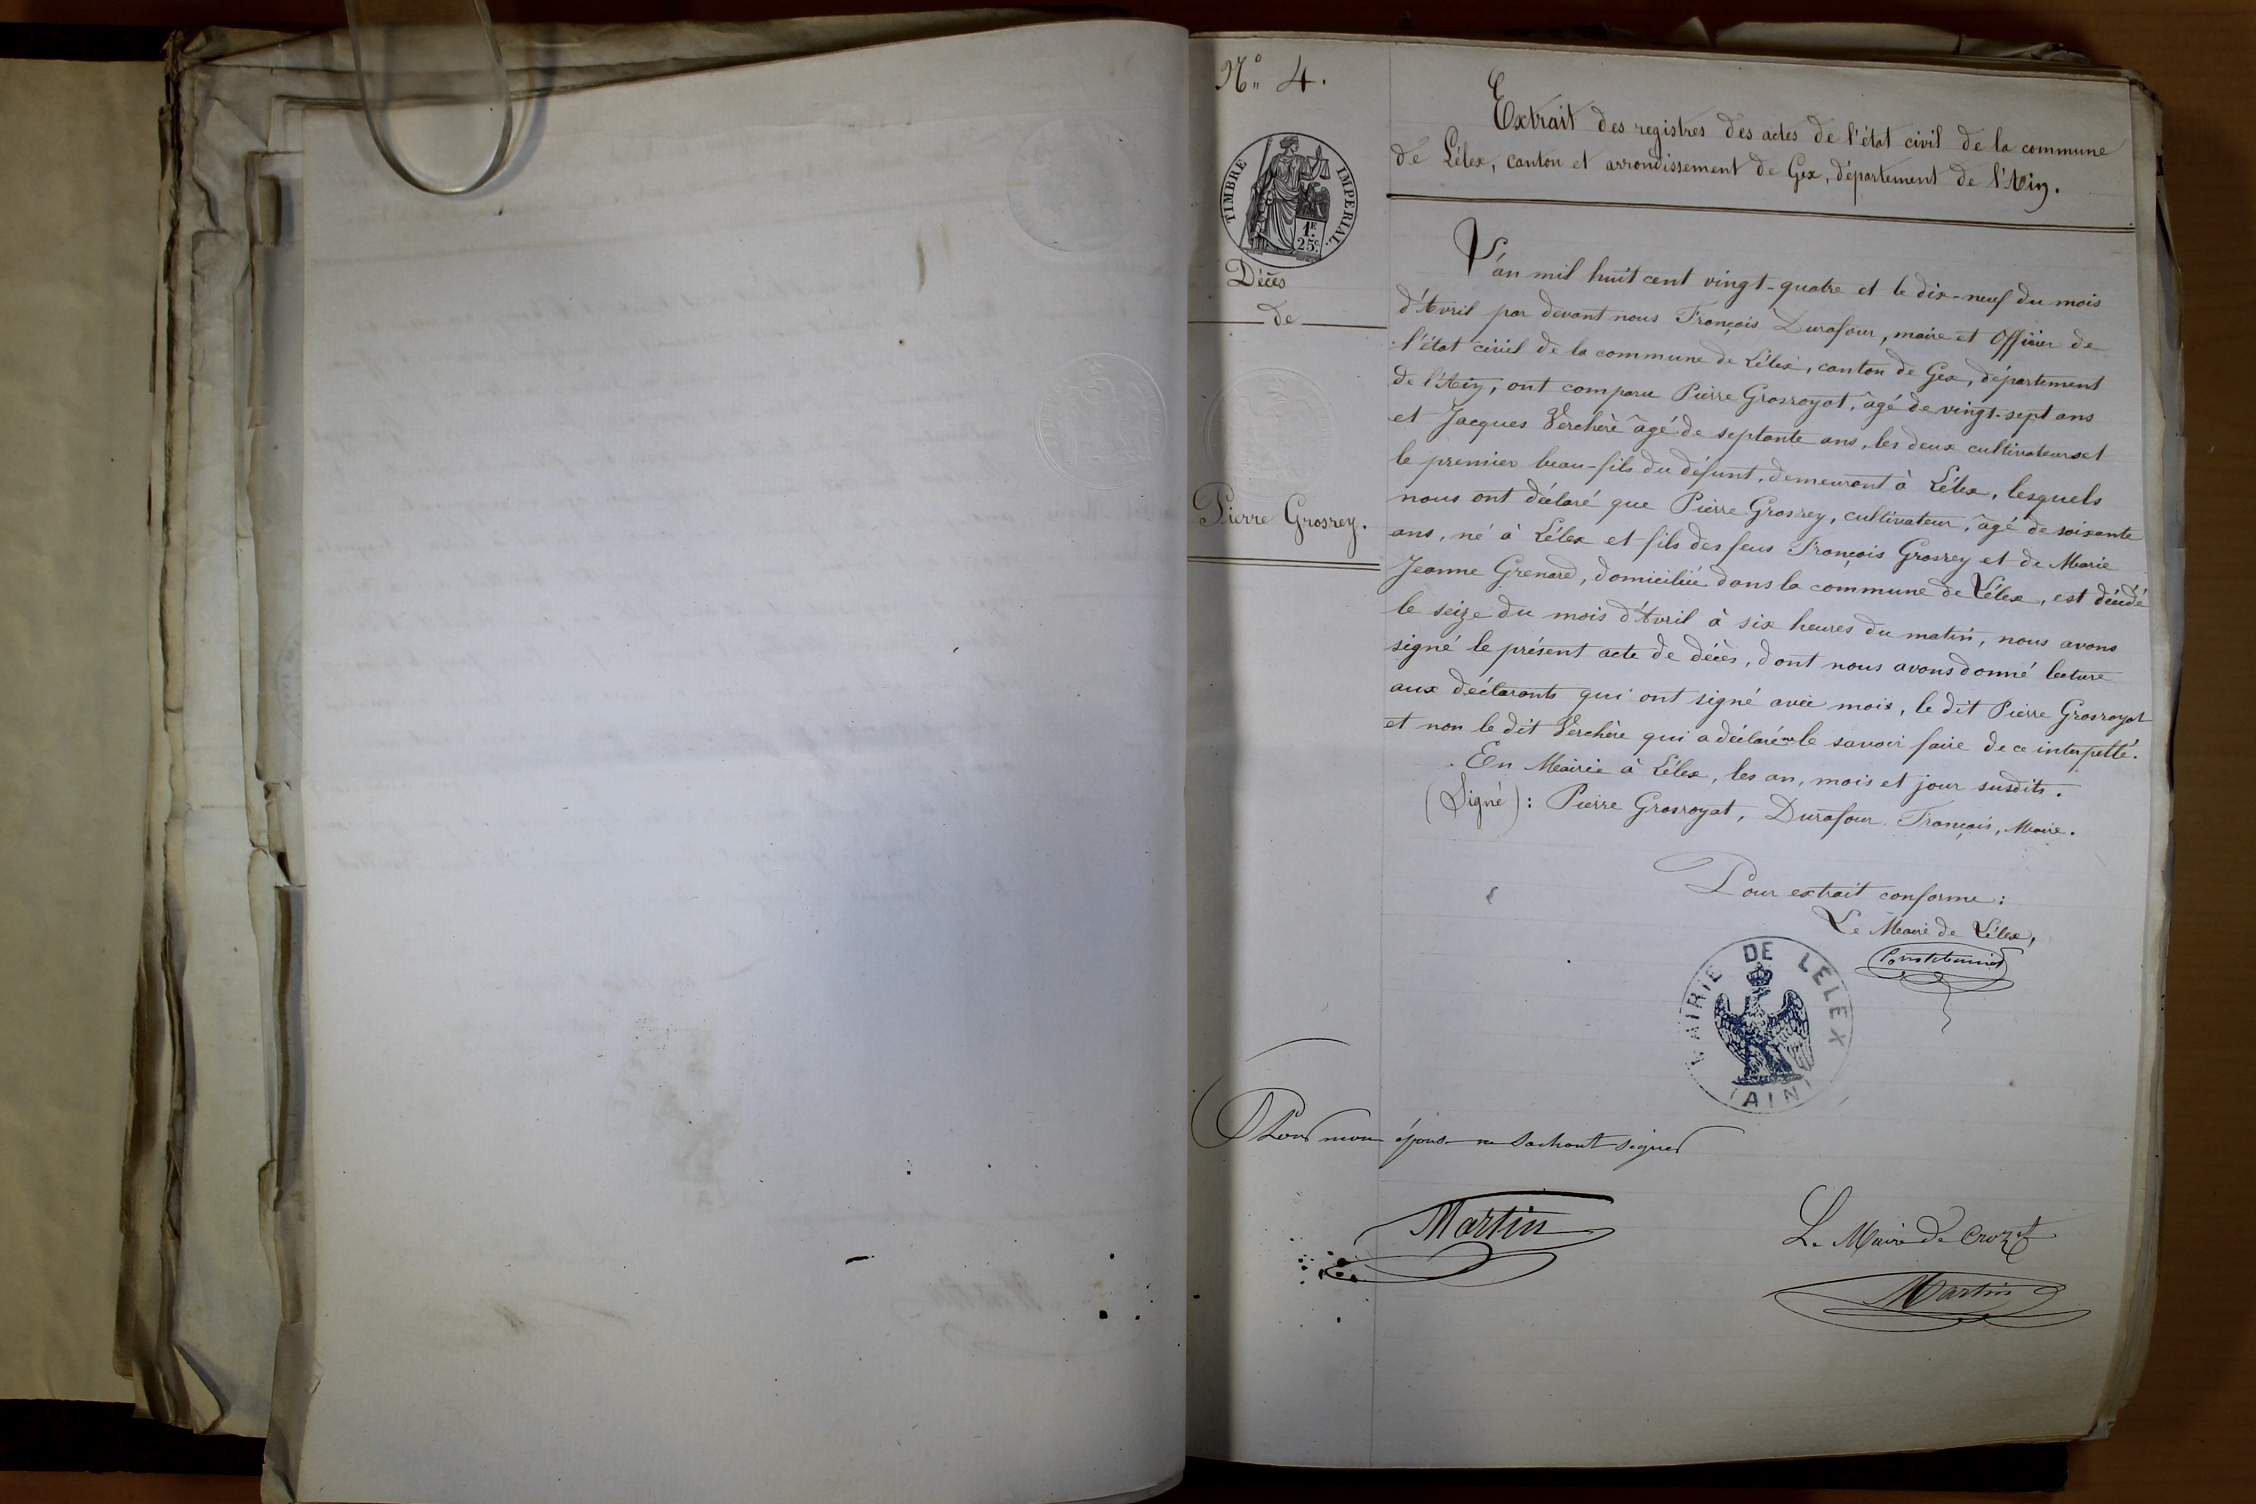 N° 4.
TIMBRE IMPÉRIAL.
1F.
25c.
Décès
de
Pierre Grosrey.
Extrait des registres des actes de l'état civil de la commune
de Lélex, canton et arrondissement de Gex, département de l'Ain.
L'an mil huit cent vingt-quatre et le dix-neuf du mois
d'Avril par devant nous François Durafour, maire et Officier de
l'état civil de la commune de Lélex, canton de Gex, département
de l'Ain, ont comparu Pierre Grosroyat, âgé de vingt-sept ans
et Jacques Verchère âgé de septante ans, les deux cultivateurs et
le premier beau-fils du défunt, demeurant à Lélex, lesquels
nous ont déclaré que Pierre Grosrey, cultivateur, âgé de soixante
ans, né à Lélex et fils des feus François Grosrey et de Marie
Jeanne Grenard, domicilié dans la commune de Lélex, est décédé
le seize du mois d'Avril à six heures du matin, nous avons
signé le présent acte de décès, dont nous avons donné lecture
aux déclarants qui ont signé avec mois, le dit Pierre Grosroyat
et non le dit Verchère qui a déclaré ne le savoir faire de ce interpellé.
En Mairie à Lélex, les an, mois et jour susdits.
(Signé): Pierre Grosroyat, Durafour François, Maire.
Pour extrait conforme:
Le Maire de Lélex,
MAIRIE DE LÉLEX
(AIN)
Pour mon épouse ne sachant signer
Martin
Le Maire de Crozet
Martin